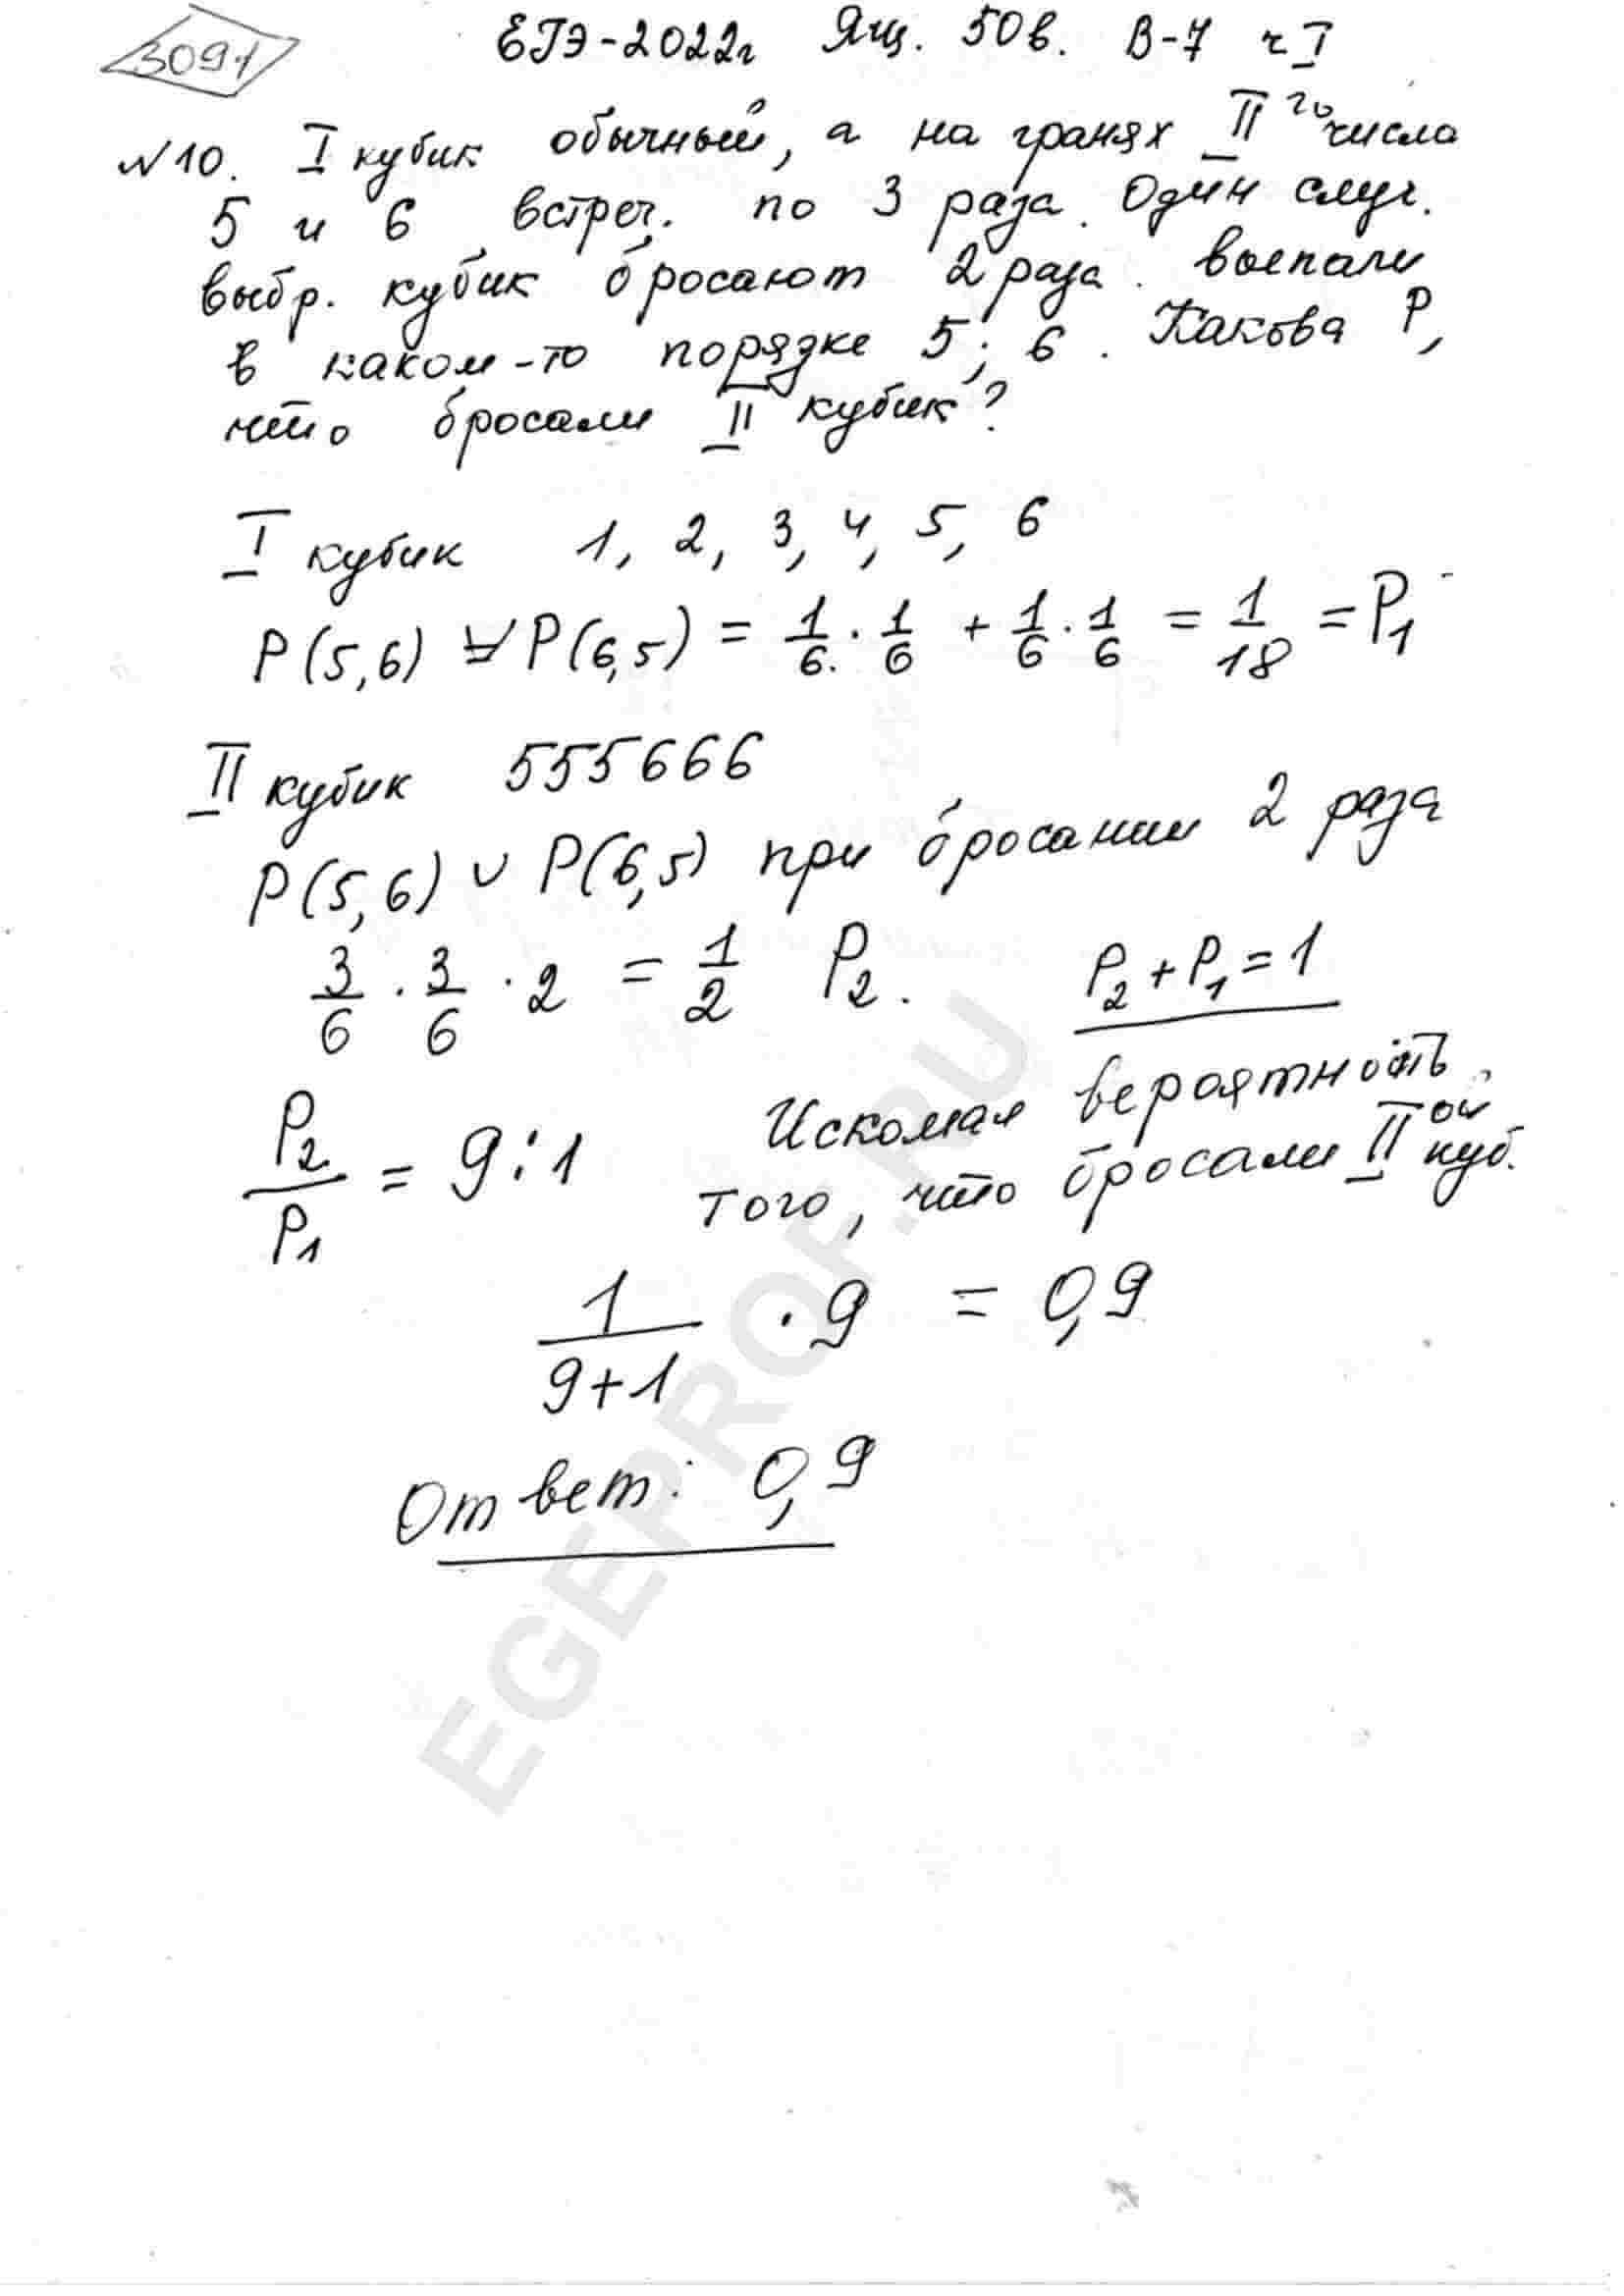 3091
ЕГЭ-2022г Ящ. 50в. В-7 ч I
№10. I кубик обычный, а на гранях II го числа
5 и 6 встреч. по 3 раза. Один случ.
выбр. кубик бросают 2 раза. Выпали
в каком-то порядке 5; 6. Какова P,
что бросали II кубик?
I кубик 1, 2, 3, 4, 5, 6
P(5,6) ∪ P(6,5) = 1/6 · 1/6 + 1/6 · 1/6 = 1/18 = P₁
II кубик 555666
P(5,6) ∪ P(6,5) при бросании 2 раза
3/6 · 3/6 · 2 = 1/2 P₂. P₂ + P₁ = 1
P₂/P₁ = 9:1 Искомая вероятность
того, что бросали II ой куб.
1/(9+1) · 9 = 0,9
Ответ: 0,9
EGEPROF.RU